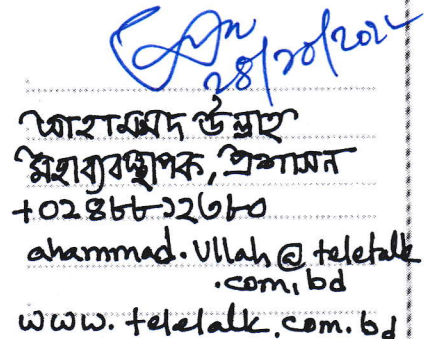 ২৪/১০/২০১২
আহামমদ উল্লাহ
মহাব্যবস্থাপক, প্রশাসন
+০২৪৮৮১২৬৮০
ahammad.Ullah@teletalk
.com.bd
www.teletalk.com.bd